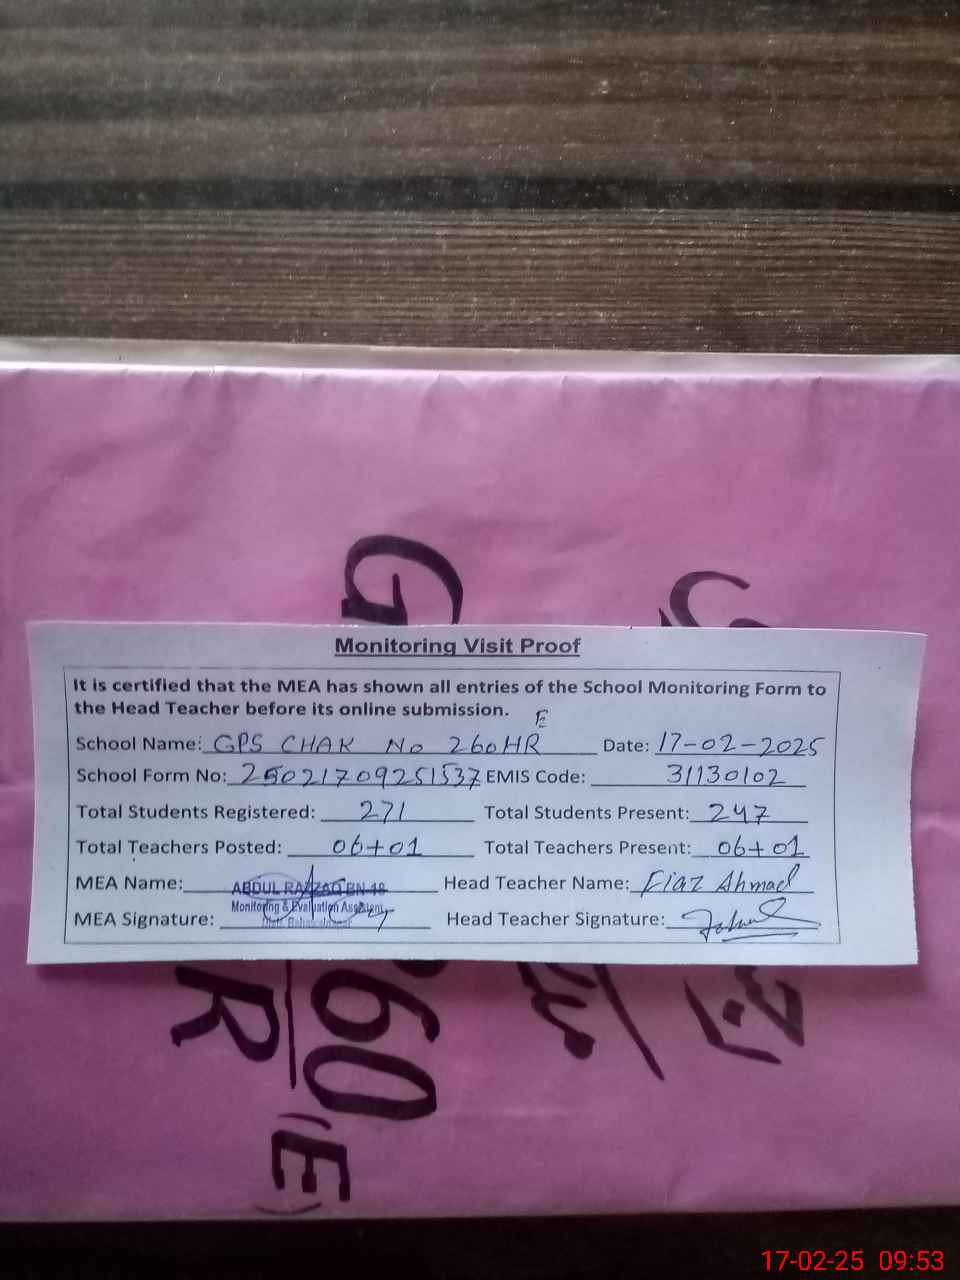 G
Monitoring Visit Proof
It is certified that the MEA has shown all entries of the School Monitoring Form to
the Head Teacher before its online submission.
School Name: GPS CHAK No 260HR E Date: 17-02-2025
School Form No: 25021709251537 EMIS Code: 31130102
Total Students Registered: 271 Total Students Present: 247
Total Teachers Posted: 06+01 Total Teachers Present: 06+01
MEA Name: ABDUL RAZZAQ BN-18 Head Teacher Name: Fiaz Ahmad
Monitoring & Evaluation Assistant
MEA Signature: Head Teacher Signature:
60
R
(E)
17-02-25 09:53